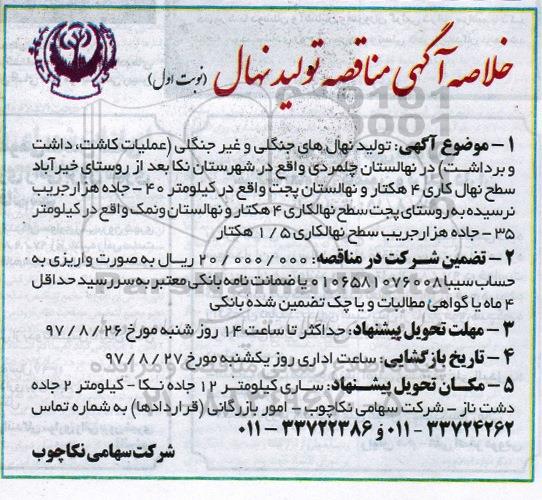 خلاصه آگهی مناقصه تولید نهال (نوبت اول)
۱ – موضوع آگهی: تولید نهال های جنگلی و غیر جنگلی (عملیات کاشت، داشت
و برداشت) در نهالستان چلمردی واقع در شهرستان نکا بعد از روستای خیرآباد
سطح نهال کاری ۴ هکتار و نهالستان پجت واقع در کیلومتر ۴۰ – جاده هزار جریب
نرسیده به روستای پجت سطح نهالکاری ۴ هکتار و نهالستان ونمک واقع در کیلومتر
۳۵ – جاده هزار جریب سطح نهالکاری ۱/۵ هکتار
۲ – تضمین شرکت در مناقصه: ۲۰/۰۰۰/۰۰۰ ریال به صورت واریزی به
حساب سیبا ۰۱۰۶۵۸۱۰۷۶۰۰۸ یا ضمانت نامه بانکی معتبر به سررسید حداقل
۴ ماه یا گواهی مطالبات و یا چک تضمین شده بانکی
۳ – مهلت تحویل پیشنهاد: حداکثر تا ساعت ۱۴ روز شنبه مورخ ۹۷/۸/۲۶
۴ – تاریخ بازگشایی: ساعت اداری روز یکشنبه مورخ ۹۷/۸/۲۷
۵ – مکان تحویل پیشنهاد: ساری کیلومتر ۱۲ جاده نکا – کیلومتر ۲ جاده
دشت ناز – شرکت سهامی نکاچوب – امور بازرگانی (قراردادها) به شماره تماس
۳۳۷۲۴۲۶۲–۰۱۱ و ۳۳۷۲۲۳۸۶–۰۱۱
شرکت سهامی نکاچوب